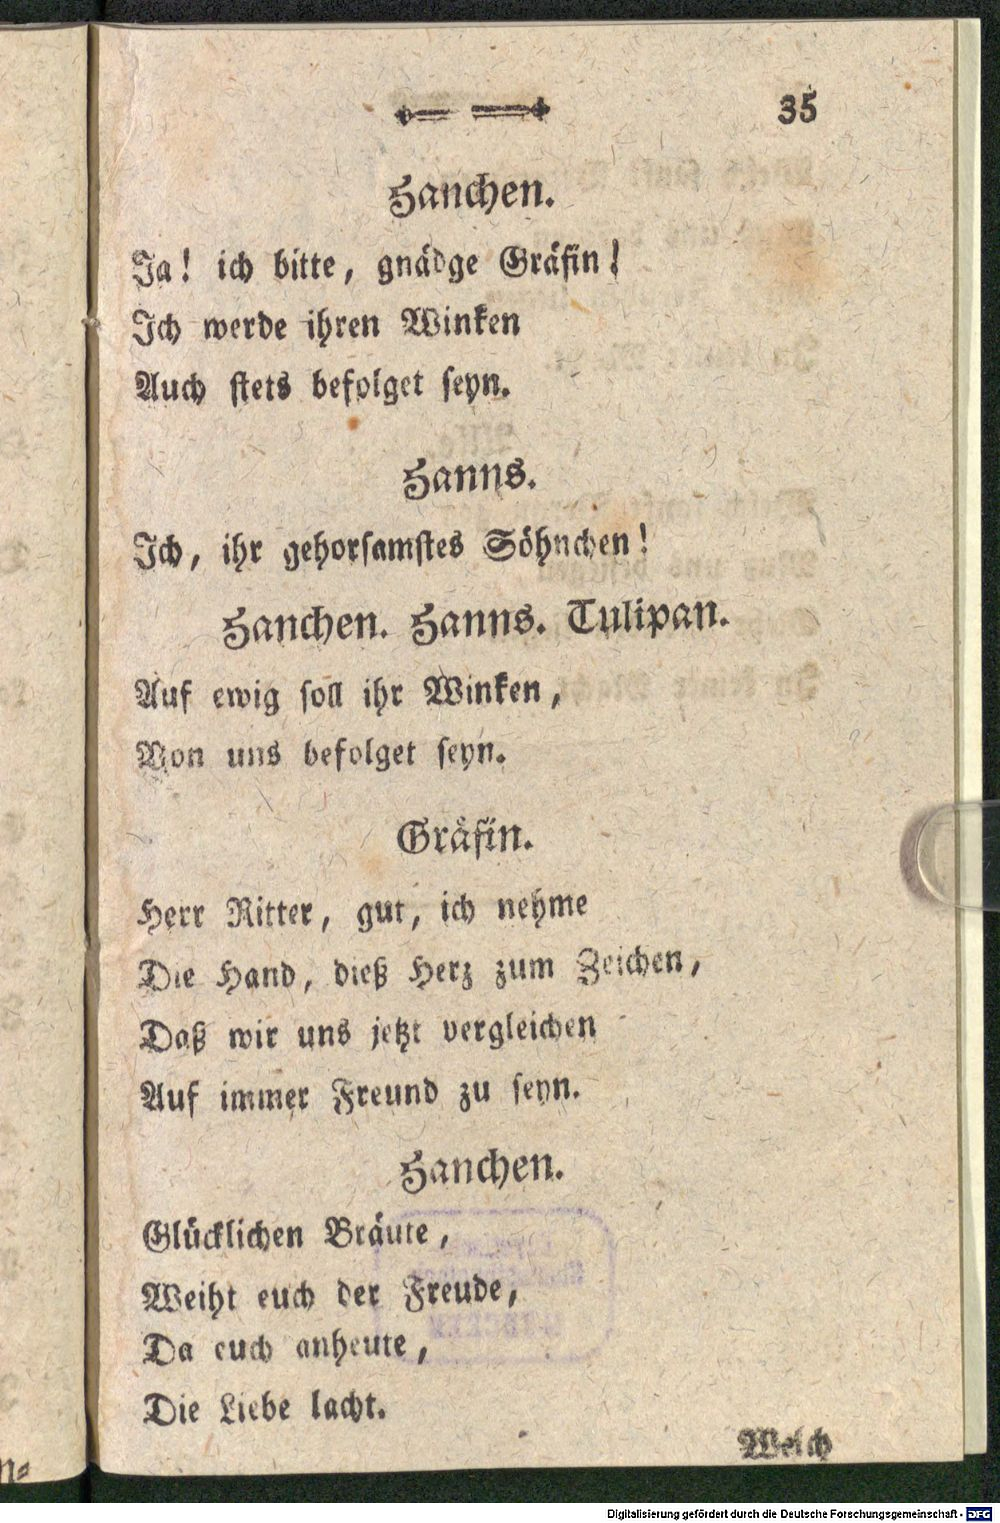 35
Hanchen.
Ja! ich bitte, gnädge Gräfin!
Ich werde ihren Winken
Auch stets befolget seyn.
Hanns.
Ich, ihr gehorsamstes Söhnchen!
Hanchen. Hanns. Tulipan.
Auf ewig soll ihr Winken,
Von uns befolget seyn.
Gräfin.
Herr Ritter, gut, ich nehme
Die Hand, dieß Herz zum Zeichen,
Daß wir uns jetzt vergleichen
Auf immer Freund zu seyn.
Hanchen.
Glücklichen Bräute,
Weiht euch der Freude,
Da euch anheute,
Die Liebe lacht.
Welch
Digitalisierung gefördert durch die Deutsche Forschungsgemeinschaft - DFG